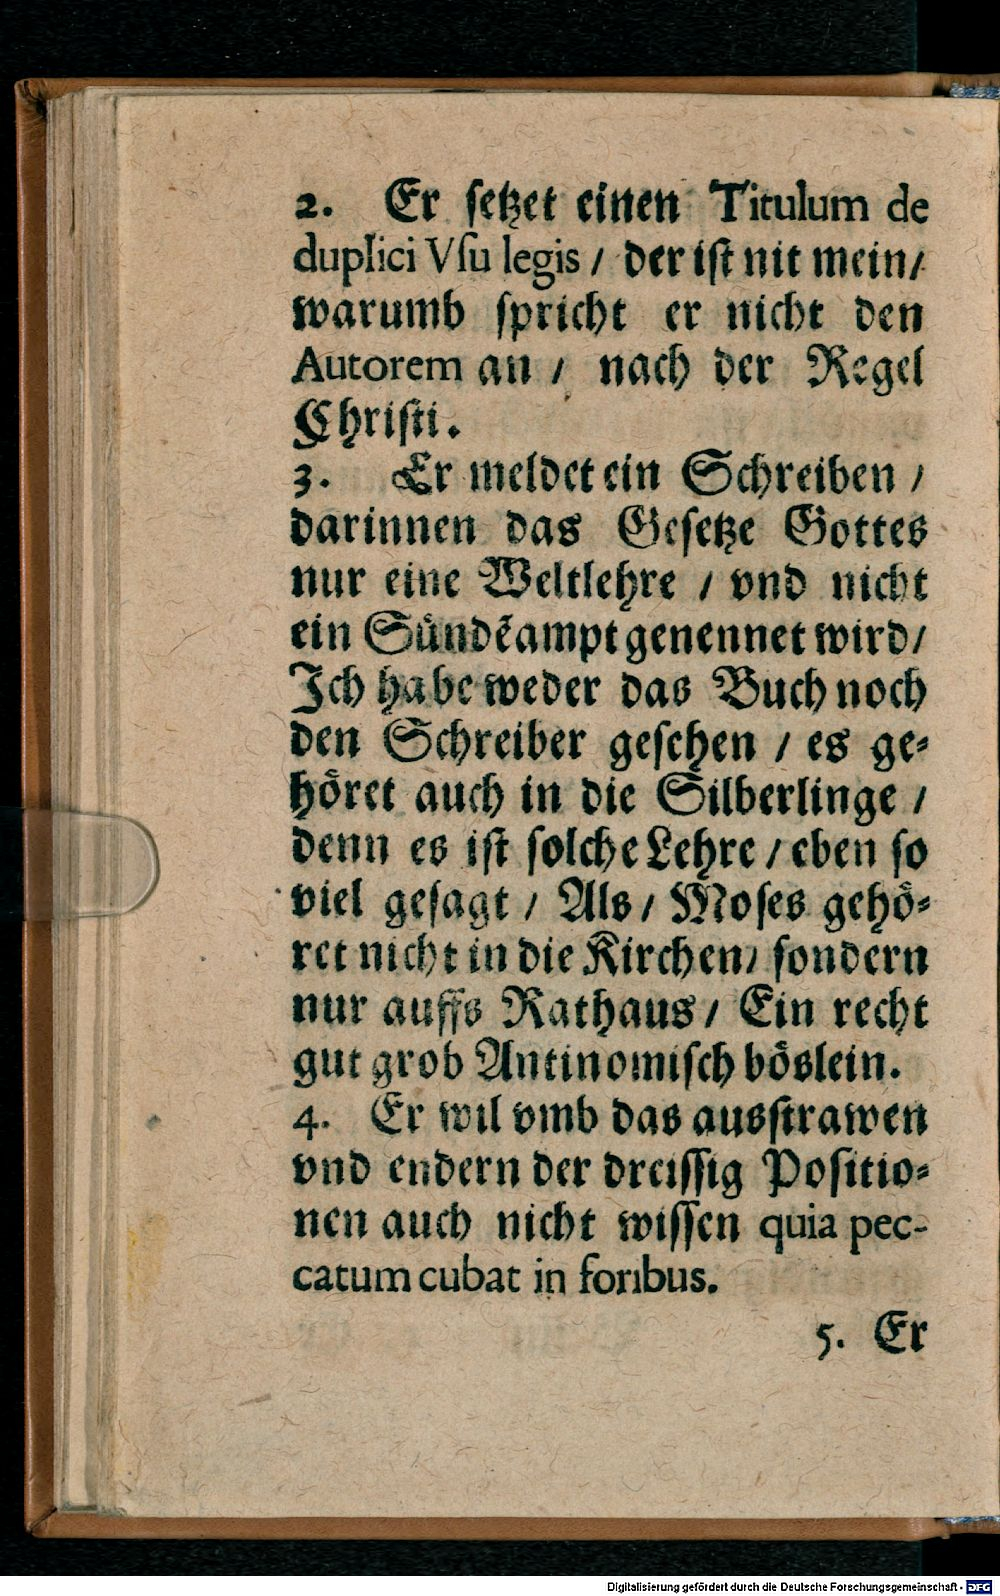 2. Er ſetzet einen Titulum de
duplici Vſu legis / der iſt nit mein/
warumb ſpricht er nicht den
Autorem an / nach der Regel
Chriſti.
3. Er meldet ein Schreiben /
darinnen das Geſetze Gottes
nur eine Weltlehre / vnd nicht
ein Sündẽampt genennet wird/
Ich habe weder das Buch noch
den Schreiber geſehen / es ge⸗
höret auch in die Silberlinge /
denn es iſt ſolche Lehre / eben ſo
viel geſagt / Als / Moſes gehö⸗
ret nicht in die Kirchen/ ſondern
nur auffs Rathaus / Ein recht
gut grob Antinomiſch böslein.
4. Er wil vmb das ausſtrawen
vnd endern der dreiſſig Poſitio⸗
nen auch nicht wiſſen quia pec-
catum cubat in foribus.
5. Er
Digitalisierung gefördert durch die Deutsche Forschungsgemeinschaft - DFG